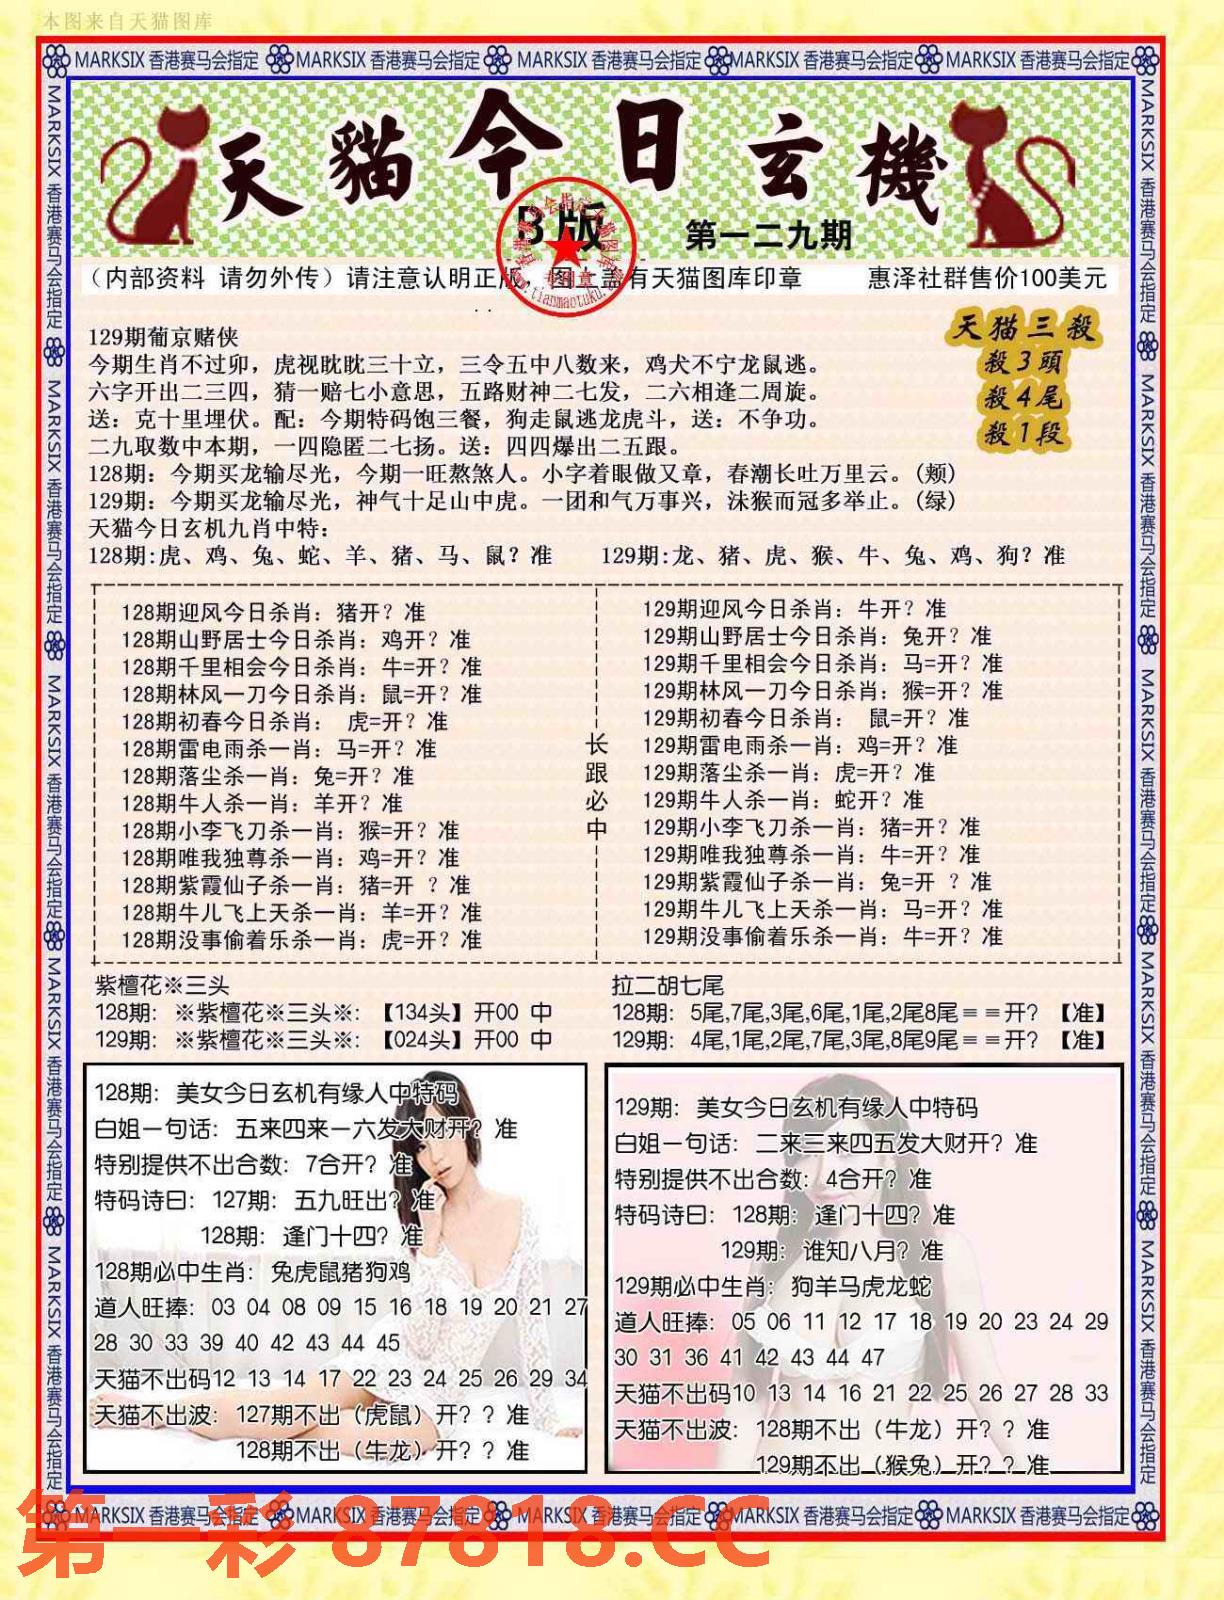 本图来自天猫图库
MARKSIX 香港赛马会指定 MARKSIX 香港赛马会指定 MARKSIX 香港赛马会指定 MARKSIX 香港赛马会指定 MARKSIX 香港赛马会指定
天貓今日玄機
B版
第一二九期
（内部资料 请勿外传）请注意认明正版 图上盖有天猫图库印章 惠泽社群售价100美元
天猫三殺
殺3頭
殺4尾
殺1段
129期葡京赌侠
今期生肖不过卯，虎视眈眈三十立，三令五中八数来，鸡犬不宁龙鼠逃。
六字开出二三四，猜一赔七小意思，五路财神二七发，二六相逢二周旋。
送：克十里埋伏。配：今期特码饱三餐，狗走鼠逃龙虎斗，送：不争功。
二九取数中本期，一四隐匿二七扬。送：四四爆出二五跟。
128期：今期买龙输尽光，今期一旺熬煞人。小字着眼做又章，春潮长吐万里云。(颊)
129期：今期买龙输尽光，神气十足山中虎。一团和气万事兴，沫猴而冠多举止。(绿)
天猫今日玄机九肖中特：
128期:虎、鸡、兔、蛇、羊、猪、马、鼠？准 129期:龙、猪、虎、猴、牛、兔、鸡、狗？准
128期迎风今日杀肖：猪开？准
128期山野居士今日杀肖：鸡开？准
128期千里相会今日杀肖：牛=开？准
128期林风一刀今日杀肖：鼠=开？准
128期初春今日杀肖： 虎=开？准
128期雷电雨杀一肖：马=开？准
128期落尘杀一肖：兔=开？准
128期牛人杀一肖：羊开？准
128期小李飞刀杀一肖：猴=开？准
128期唯我独尊杀一肖：鸡=开？准
128期紫霞仙子杀一肖：猪=开 ？准
128期牛儿飞上天杀一肖：羊=开？准
128期没事偷着乐杀一肖：虎=开？准
长跟必中
129期迎风今日杀肖：牛开？准
129期山野居士今日杀肖：兔开？准
129期千里相会今日杀肖：马=开？准
129期林风一刀今日杀肖：猴=开？准
129期初春今日杀肖： 鼠=开？准
129期雷电雨杀一肖：鸡=开？准
129期落尘杀一肖：虎=开？准
129期牛人杀一肖：蛇开？准
129期小李飞刀杀一肖：猪=开？准
129期唯我独尊杀一肖：牛=开？准
129期紫霞仙子杀一肖：兔=开 ？准
129期牛儿飞上天杀一肖：马=开？准
129期没事偷着乐杀一肖：牛=开？准
紫檀花※三头
128期：※紫檀花※三头※：【134头】开00 中
129期：※紫檀花※三头※：【024头】开00 中
拉二胡七尾
128期： 5尾,7尾,3尾,6尾,1尾,2尾8尾＝＝开？【准】
129期： 4尾,1尾,2尾,7尾,3尾,8尾9尾＝＝开？【准】
128期：美女今日玄机有缘人中特码
白姐一句话：五来四来一六发大财开？准
特别提供不出合数：7合开？准
特码诗曰：127期：五九旺出？准
128期：逢门十四？准
128期必中生肖：兔虎鼠猪狗鸡
道人旺捧：03 04 08 09 15 16 18 19 20 21 27
28 30 33 39 40 42 43 44 45
天猫不出码12 13 14 17 22 23 24 25 26 29 34
天猫不出波：127期不出（虎鼠）开？？准
128期不出（牛龙）开？？准
129期：美女今日玄机有缘人中特码
白姐一句话：二来三来四五发大财开？准
特别提供不出合数：4合开？准
特码诗曰：128期：逢门十四？准
129期：谁知八月？准
129期必中生肖：狗羊马虎龙蛇
道人旺捧：05 06 11 12 17 18 19 20 23 24 29
30 31 36 41 42 43 44 47
天猫不出码10 13 14 16 21 22 25 26 27 28 33
天猫不出波：128期不出（牛龙）开？？准
129期不出（猴兔）开？？准
MARKSIX 香港赛马会指定 MARKSIX 香港赛马会指定 MARKSIX 香港赛马会指定 MARKSIX 香港赛马会指定 MARKSIX 香港赛马会指定
第一彩 87818.CC